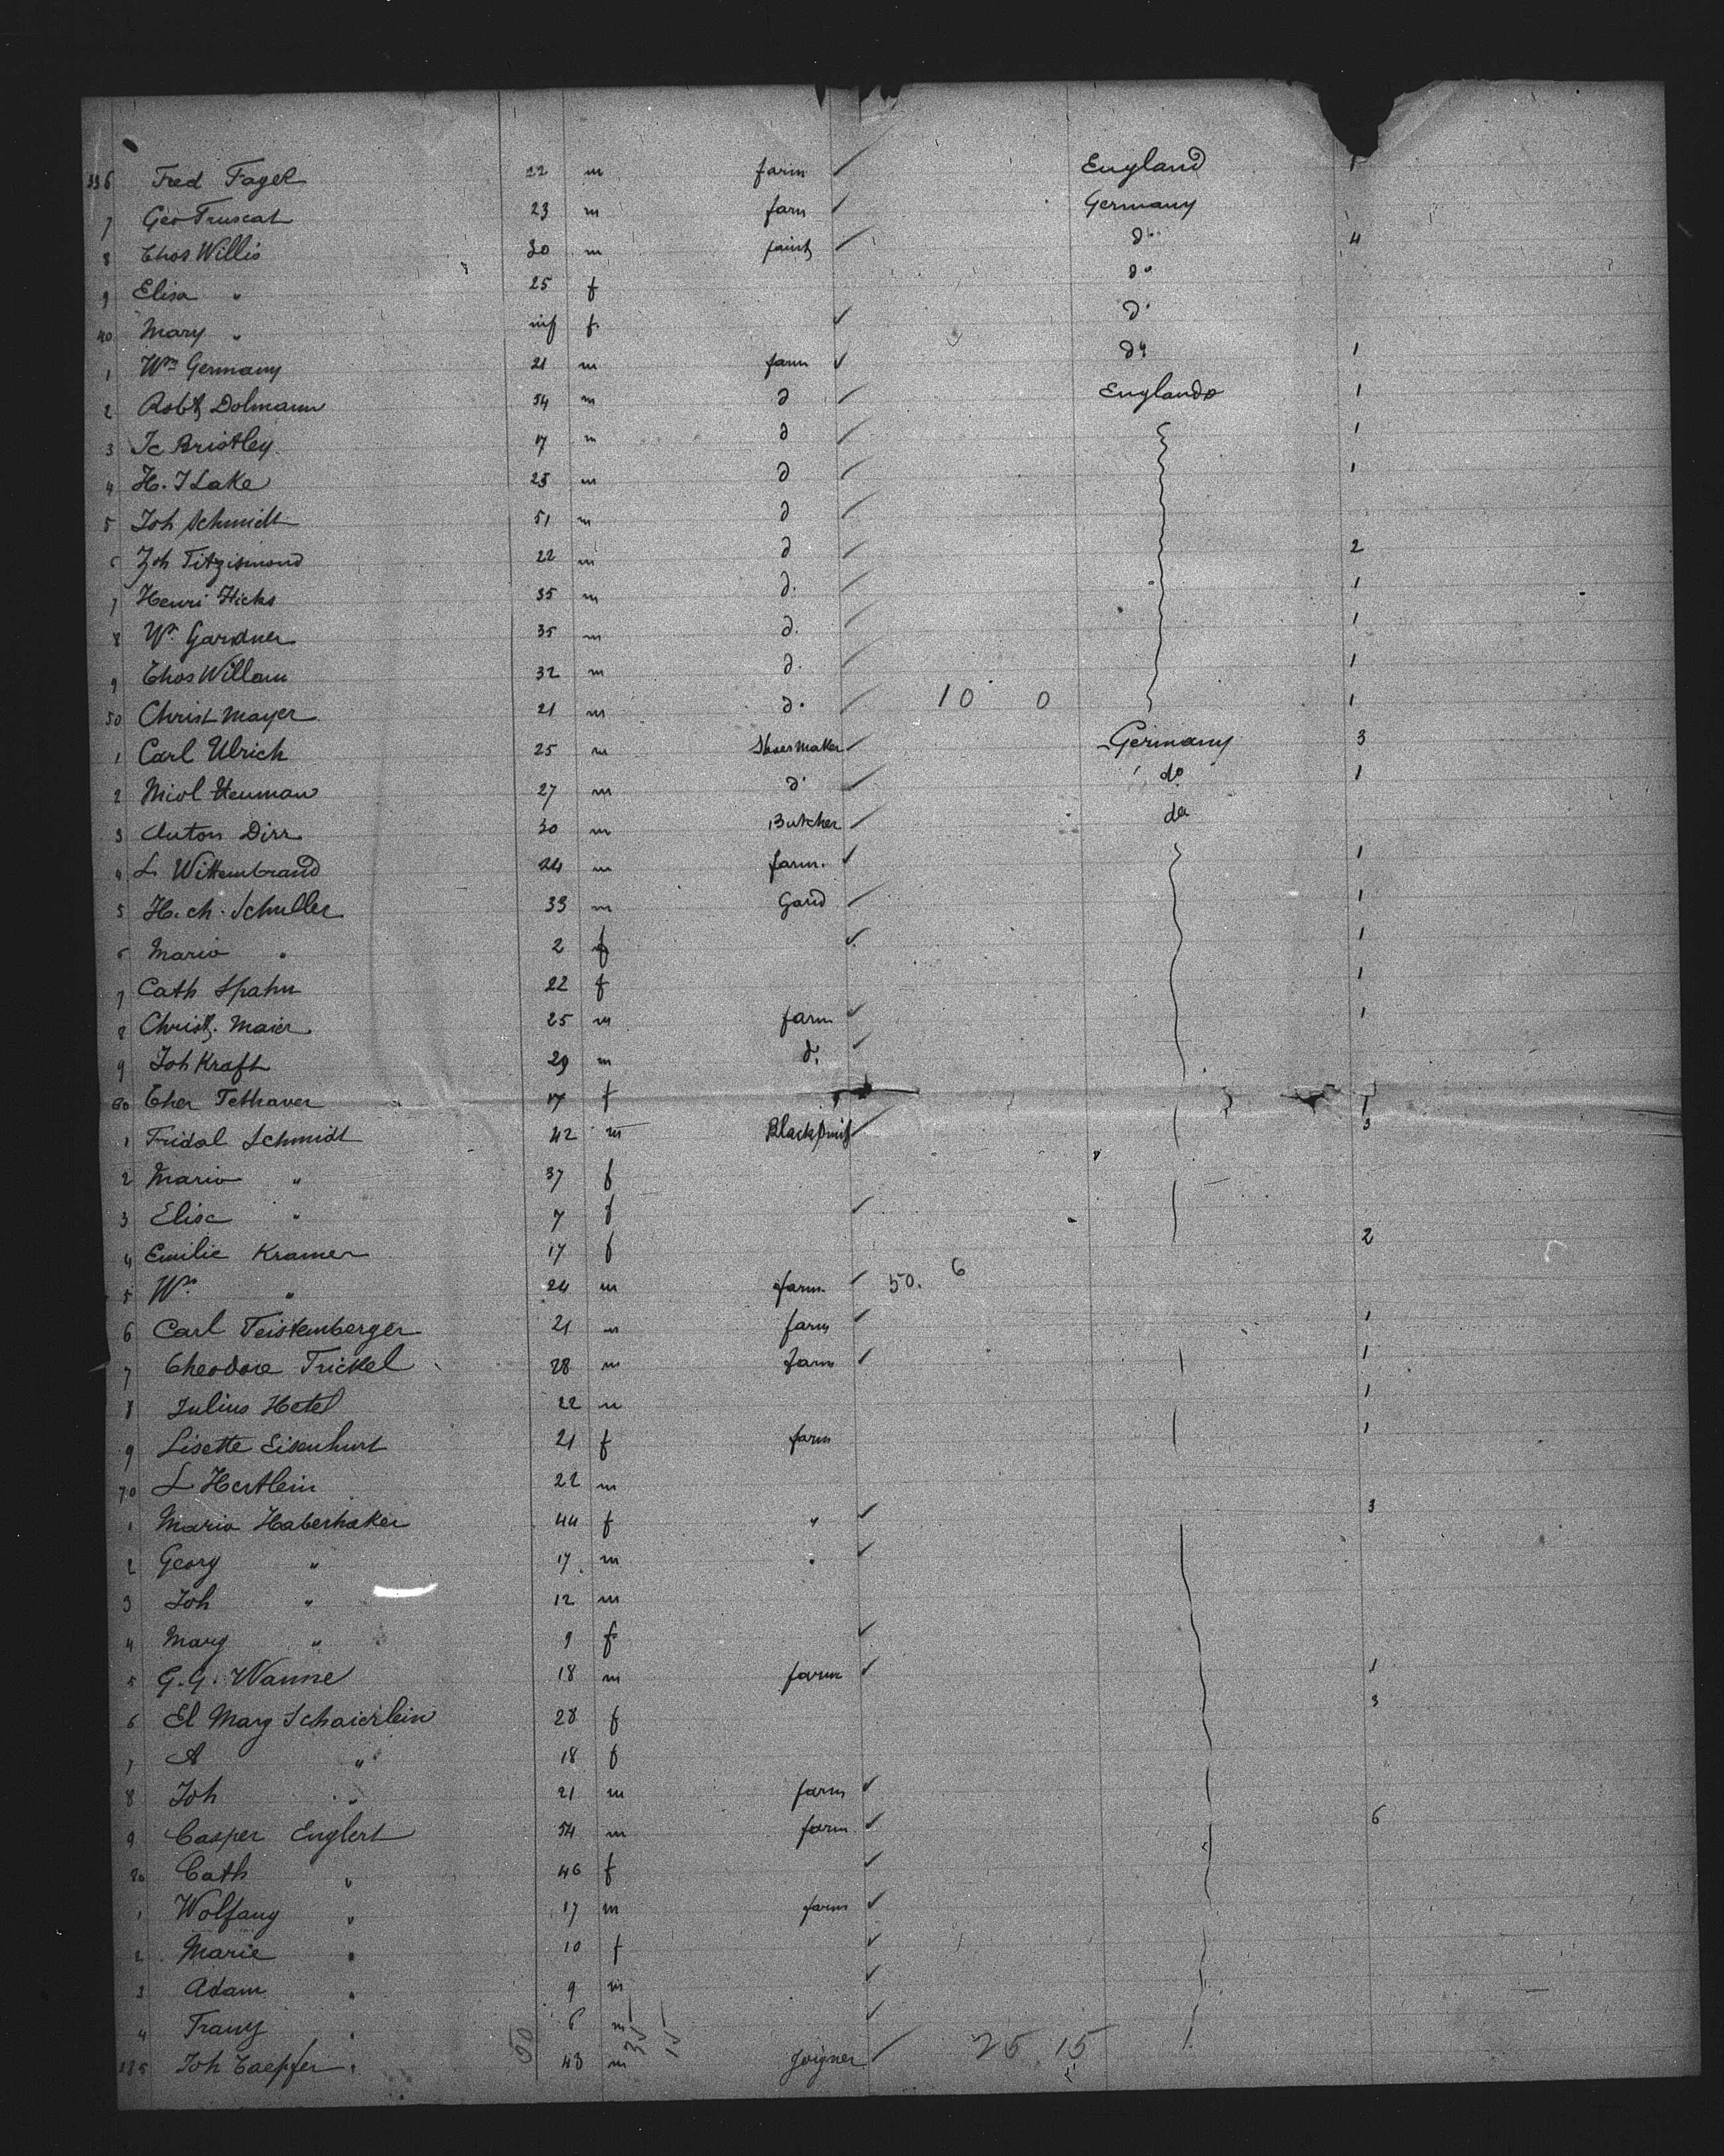 336 Fred Fagel 22 m farm England 1
7 Geo Truscat 23 m farm Germany
8 Thos Willis 30 m do 4
9 Elisa " 25 f do
40 Mary " inf f. do
1 Wm Germany 21 m farm do 1
2 Robt Dolmann 54 m d England 1
3 Jc Bristley 17 m d 1
4 H. J Lake 25 m d 1
5 Joh Schmidt 51 m d
6 Joh Fitzismond 22 m d 2
7 Henri Hicks 35 m d. 1
8 Wm Gardner 35 m d. 1
9 Thos Willam 32 m d. 1
50 Christ Mayer 21 m d. 10 0 1
1 Carl Ulrich 25 m Shoesmaker Germany 3
2 Nicol Neuman 27 m d. do 1
3 Anton Dirr 30 m Butcher do
4 L Wittembrand 24 m farm. 1
5 H. ch. Schuller 33 m Gard 1
6 Maria " 2 f 1
7 Cath Spahn 22 f 1
8 Christ. Maier 25 m farm 1
9 Joh Kraft 29 m d.
60 Ther Tethaver 17 f 1
1 Fridol Schmidt 42 m Blacksmit 3
2 Maria " 37 f
3 Elise " 7 f
4 Emilie Kramer 17 f 2
5 Wm " 24 m farm. 50. 6
6 Carl Feistemberger 21 m farm 1
7 Theodore Trickel 28 m farm 1
8 Julius Hetel 22 m 1
9 Lisette Eisenhurt 21 f farm 1
70 L Hertlein 22 m
1 Maria Haberhaker 44 f " 3
2 Georg " 17. m "
3 Joh " 12 m
4 Marg " 9 f
5 G. G. Wanne 18 m farm 1
6 El Marg Schaierlein 28 f 3
7 A " 18 f
8 Joh " 21 m farm
9 Casper Englert 54 m farm. 6
80 Cath " 46 f
1 Wolfang " 17 m farm
2 Marie " 10 f
3 Adam " 9 m
4 Franz " 6 m
50 35 15
385 Joh Taepfer 43 m Joigner 25 15